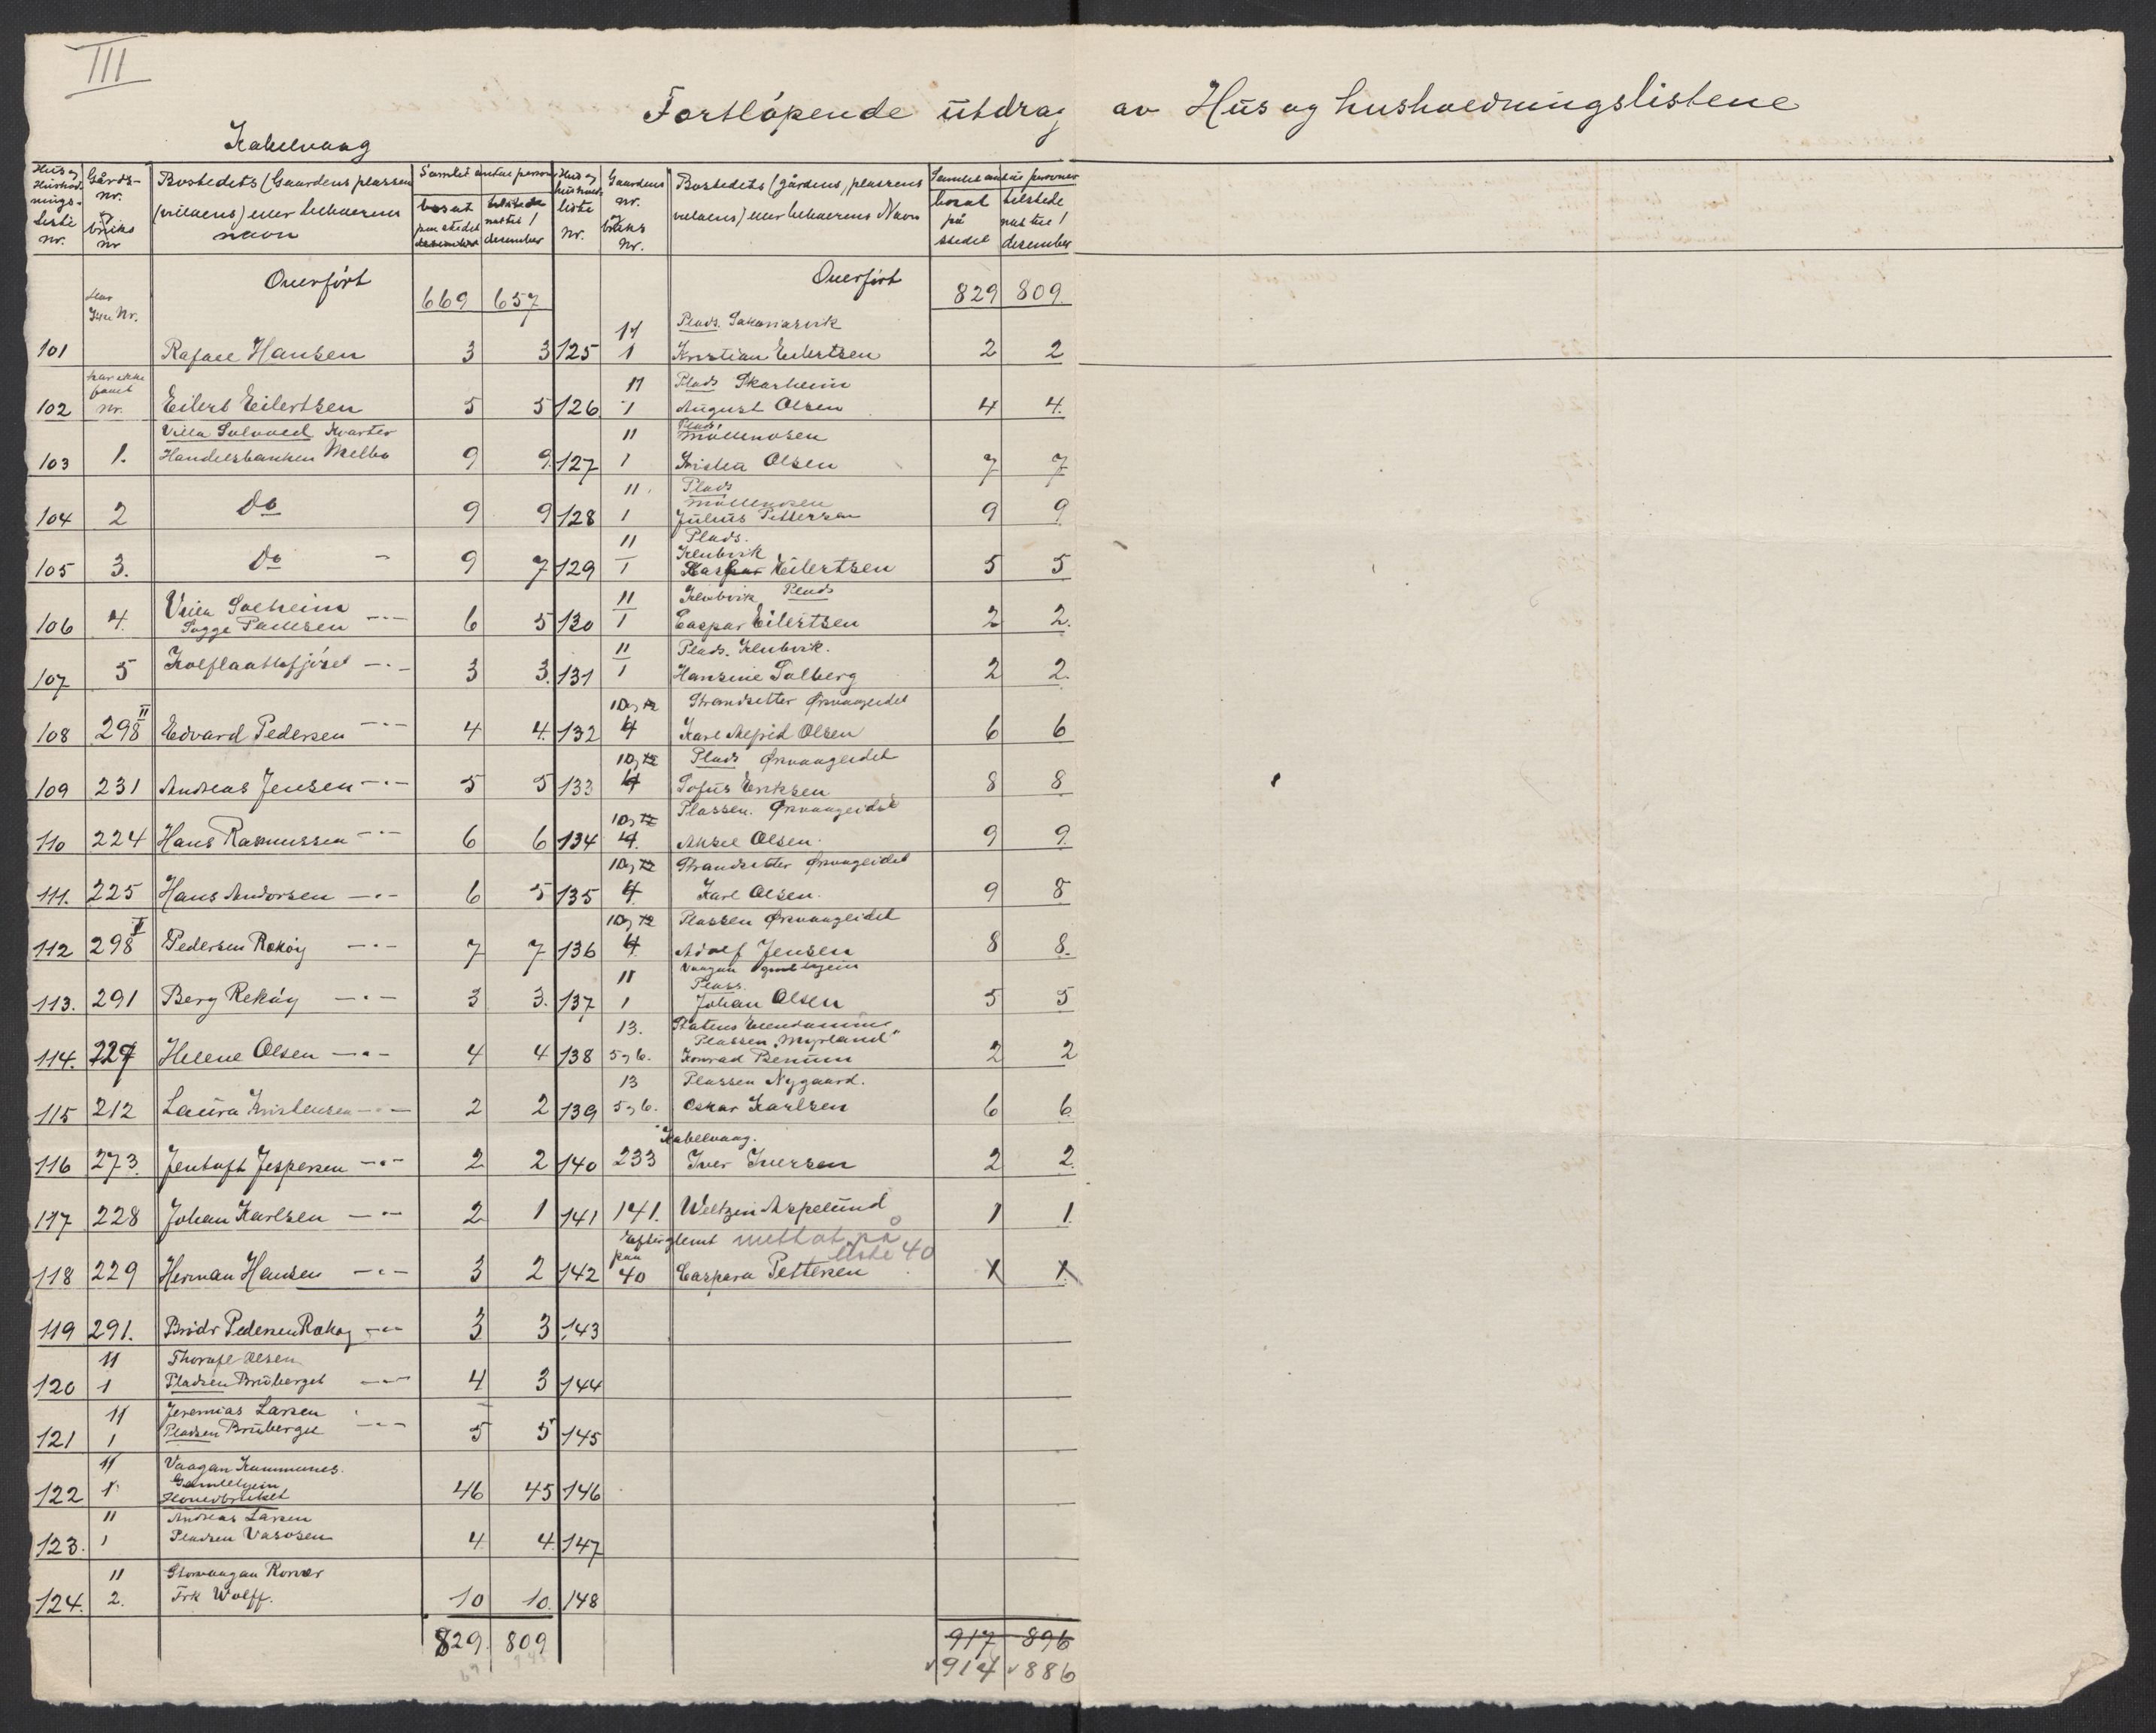 III
Fortløpende utdrag av Hus og husholdningslistene
Kabelvaag
Hus og Hushold-nings-liste nr. | Gårds-nr. og bruks nr | Bostedets (Gaardens plassens (villaens) eller beboerens navn | Samlet antal personer | bosat paa stedet | tilstede nat til 1 december | Hus og hushold liste nr. | Gaardens nr. og bruks nr. | Bostedets (gårdens, plassens villaens) eller beboerens Navn | Samlet antal personer | bosat på stedet | tilstede nat til 1 december
Overført 669 657 | Overført 829 809
har ikke Nr. | Plads. Sakariasvik
101 Rafael Hansen 3 3 | 125 11 1 Kristian Eilertsen 2 2
har ikke faaet | Plads Skarheim
102 nr. Eilert Eilertsen 5 5 | 126 11 1 August Olsen 4 4.
Villa Solvoll Kvarter | Plads Møllenosen
103 1. Handelsbanken Melbo 9 9. | 127 11 1 Kristia Olsen 7 7
Plads Møllenosen
104 2 Do 9 9 | 128 11 1 Julius Pettersen 9 9
Plads. Klubvik
105 3. Do 9 7 | 129 11 1 Eilertsen 5 5
Villa Solheim | Klubvik Plads
106 4. Paulsen 6 5 | 130 11 1 Caspar Eilertsen 2 2.
Plads. Klubvik.
107 5 3 3. | 131 11 1 Hansine Solberg 2 2.
Strandsitter Ørsvaageidet
108 298 II Edvard Pedersen 4 4. | 132 10 og 12 4 Karl Alfrid Olsen 6 6
Plads Ørsvaageidet
109 231 Andreas Jensen 5 5 | 133 10 og 12 4 Sofus Eriksen 8 8
Plassen. Ørsvaageidet
110 224 Hans Rasmussen 6 6 | 134 10 og 12 4. Aksel Olsen. 9 9.
Strandsitter Ørsvaageidet
111. 225 Hans Andorsen 6 5 | 135 10 og 12 4. Karl Olsen. 9 8
Plassen Ørsvaageidet
112 298 Pedersen Rekøy 7 7 | 136 10 og 12 4. Adolf Jensen 8 8.
Vaagan gamlehjem Plass.
113. 291 Berg Rekøy 3 3. | 137 11 1 Johan Olsen 5 5
Statens Eiendommer Plassen "Myrland"
114. 227 Helene Olsen 4 4 | 138 13. 5 og 6. Konrad Benum 2 2
Plassen Nygaard.
115 212 Laura Kristensen 2 2 | 139 13 5 og 6. Oskar Karlsen 6 6.
Kabelvaag.
116 273. Jentoft Jespersen 2 2 | 140 233 Iver Iversen 2 2.
117 228 Johan Karlsen 2 1 | 141 141. Weltzin Aspelund 1 1.
Efterglemt paa | mettat på liste 40
118 229 Herman Hansen 3 2 | 142 40 Caspara Pettersen X X
119 291. Brødr Pedersen Rekøy 3 3 | 143
Thoralf Olsen
120 11 1 Pladsen Brudberget 4 3 | 144
Jeremias Larsen
121 11 1 Pladsen Brudberget 5 5 | 145
Vaagan Kommunes. Gamlehjem
122 11 1 Hovedbruket 46 45 | 146
Andreas Larsen
123. 11 1 Pladsen Vasosen 4 4 | 147
Storvaagan Rorvær
124. 11 2. Frk Wolff. 10 10. | 148
829. 809 | 917 896
914 886